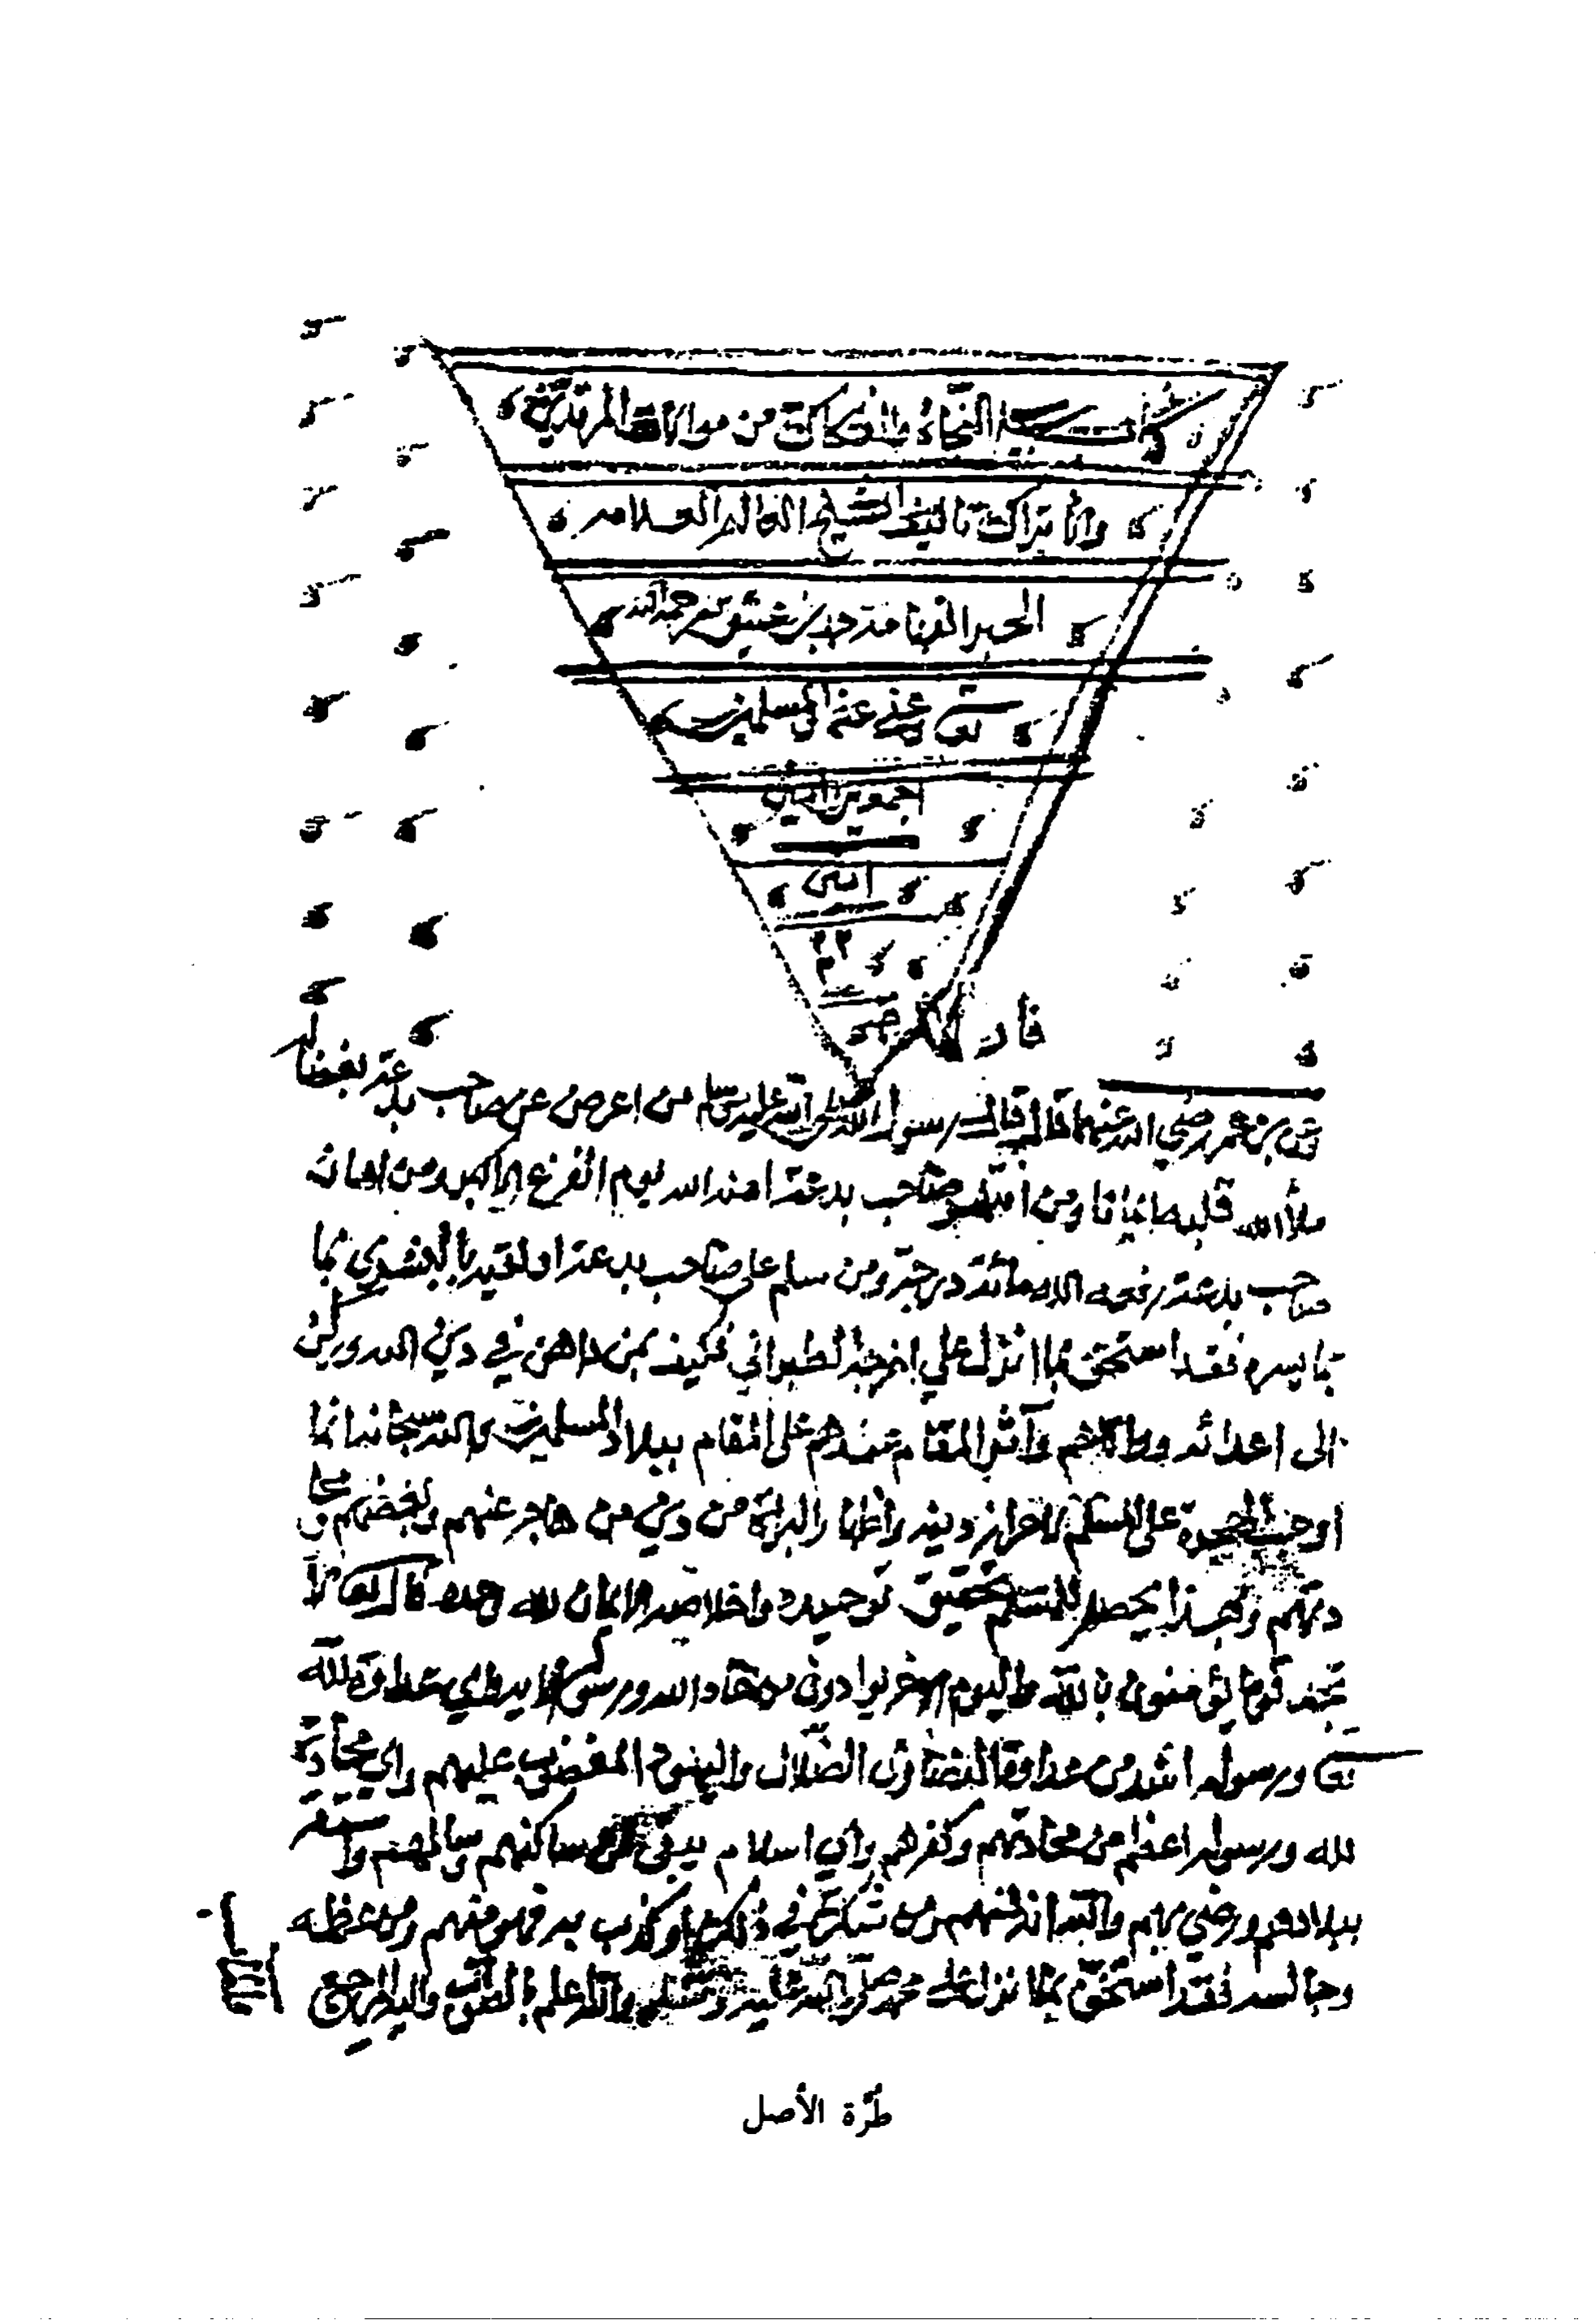 كتاب سبيل النجاة والفكاك من موالات المرتدين
والأتراك تاليف الشيخ العالم العلامه
الحبر الفهامة حمد بن عتيق رحمه الله
تعالى وعفى عنه والمسلمين
اجمعين امين
امين
م م م
فايدة
عن بن عمر رضي الله عنهما قال قال رسول الله صلى الله عليه وسلم من اعرض عن صاحب بدعة بغضا له
ملأ الله قلبه ايمانا ومن انتهر صاحب بدعة امنه الله يوم الفزع الاكبر ومن اهان
صاحب بدعة رفعه الله مائة درجة ومن سلم على صاحب بدعة او لقيه بالبشرى بما
بما يسره فقد استخف بما انزل علي اخرجه الطبراني فكيف بمن داهن في دين الله وركن
الى اعدائه وآثر المقام عندهم على المقام ببلاد المسلمين والله سبحانه انما
اوجب الهجرة على المسلم لاحراز دينه واظهار البرائة من دين من هاجر عنهم وبغضهم
دينهم وبهذا يحصل للمسلم تحقيق توحيده واخلاصه الايمان لله وحده قال تعالى لا
تجد قوما يؤمنون بالله واليوم الاخر يوادون من حاد الله ورسوله واي عداوة لله
ورسوله اشد من عداوة النصارى الضلال واليهود المغضوب عليهم واي محادة
لله ورسوله اعظم من محادتهم وكفرهم واي اسلام يبقى مع من ساكنهم وسالمهم واستقر
ببلادهم ورضي بهم والله انه لمنهم ومن شك في ذلك او كذب به فهو منهم ومن عظمه
وجالسه فقد استخف بما نزل على محمد صلى الله عليه وسلم والله اعلم بالصواب واليه المرجع
طرّة الأصل